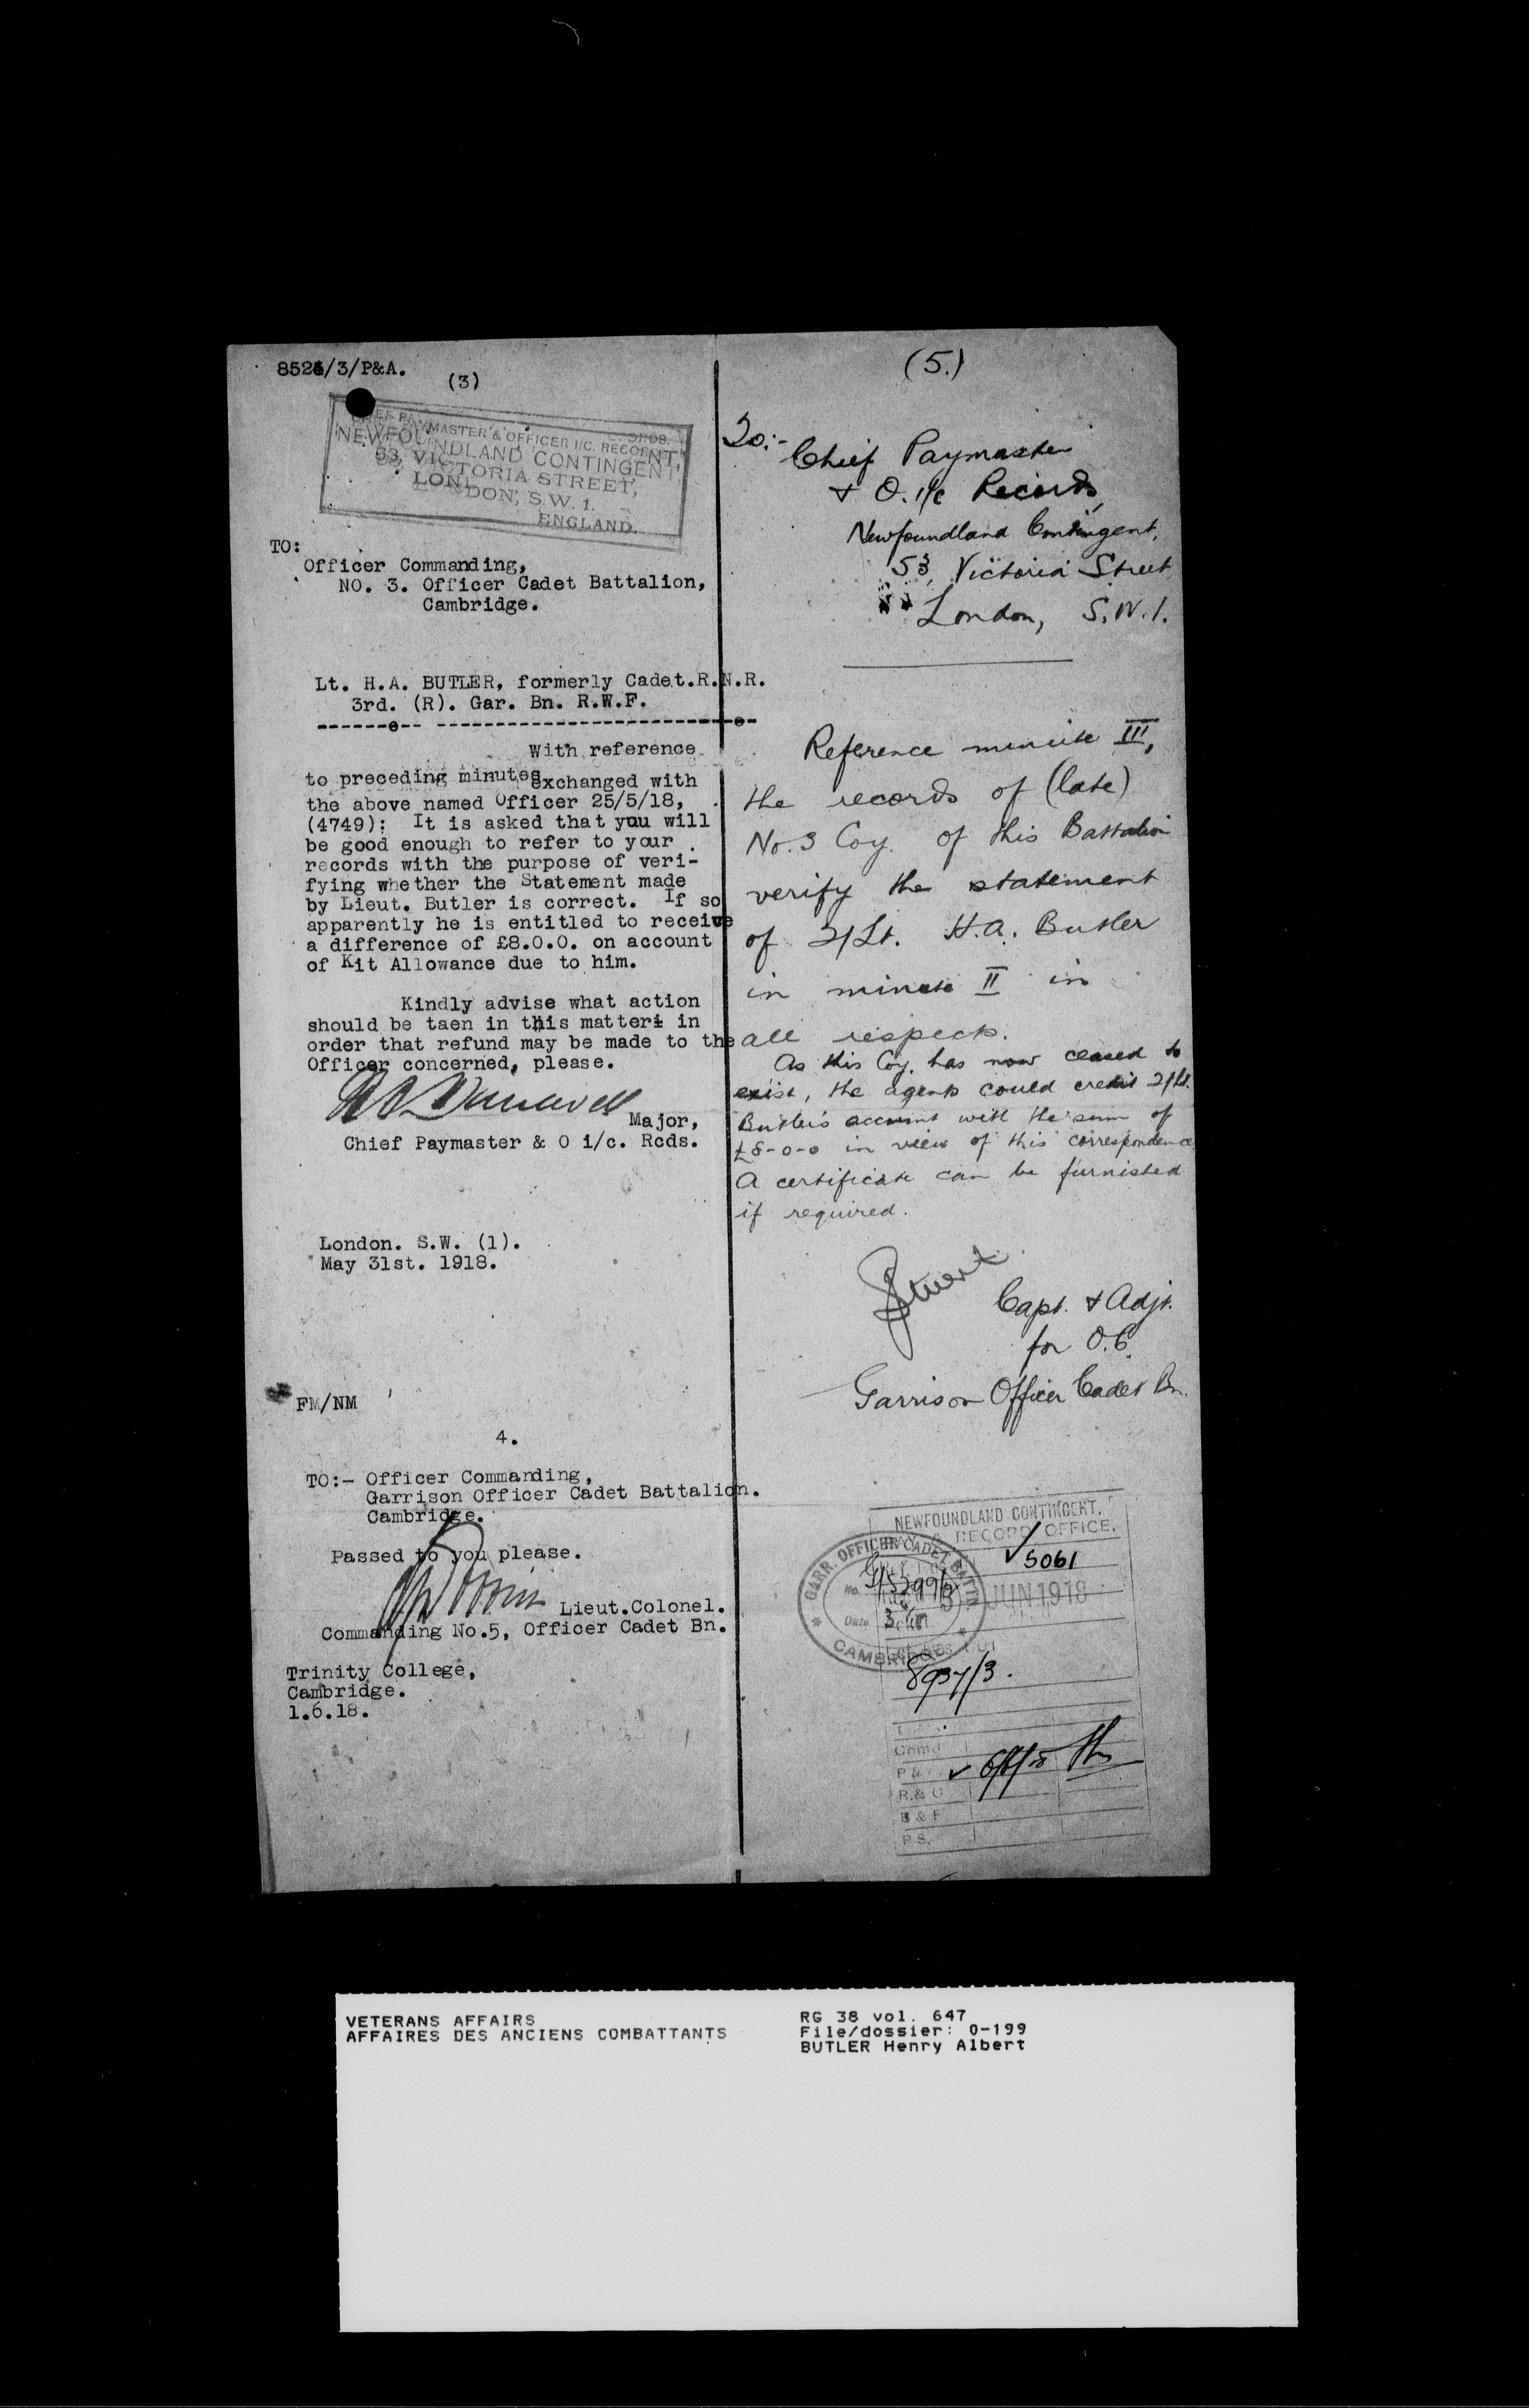 8526/3/P&A.
(3)
CHIEF PAYMASTER & OFFICER I/C. RECORDS.
NEWFOUNDLAND CONTINGENT,
53, VICTORIA STREET,
LONDON, S.W. 1.
ENGLAND.
TO:
Officer Commanding,
NO. 3. Officer Cadet Battalion,
Cambridge.
Lt. H.A. BUTLER, formerly Cadet.R.N.R.
3rd. (R). Gar. Bn. R.W.F.
With reference
to preceding minutes exchanged with
the above named Officer 25/5/18,
(4749): It is asked that you will
be good enough to refer to your
records with the purpose of veri-
fying whether the Statement made
by Lieut. Butler is correct. If so
apparently he is entitled to receive
a difference of £8.0.0. on account
of Kit Allowance due to him.
Kindly advise what action
should be taen in this matter in
order that refund may be made to the
Officer concerned, please.
Major,
Chief Paymaster & O i/c. Rcds.
London. S.W. (1).
May 31st. 1918.
FM/NM
4.
TO:- Officer Commanding,
Garrison Officer Cadet Battalion.
Cambridge.
Passed to you please.
Lieut.Colonel.
Commanding No.5, Officer Cadet Bn.
Trinity College,
Cambridge.
1.6.18.
(5.)
To:-
Chief Paymaster
& O. i/c Records,
Newfoundland Contingent,
53, Victoria Street
London, S.W.1.
Reference minute III,
the records of (late)
No. 3 Coy. of this Battalion
verify the statement
of 2/Lt. H.A. Butler
in minute II in
all respects.
As this Coy. has now ceased to
exist, the agents could credit 2/Lt.
Butler's account with the sum of
£8-0-0 in view of this correspondence
A certificate can be furnished
if required.
Stuart
Capt. & Adjt.
for O.C.
Garrison Officer Cadet Bn.
NEWFOUNDLAND CONTINGENT,
PAY & RECORD OFFICE.
✓ 5061
GARR. OFFICER CADET BATTN.
No. G/5299/2
JUN 1918
Date
CAMBRIDGE
8937/3.
Comd
P &
✓ 6/6/18
R. & C
B & F
P S.
VETERANS AFFAIRS
AFFAIRES DES ANCIENS COMBATTANTS
RG 38 vol. 647
File/dossier: 0-199
BUTLER Henry Albert